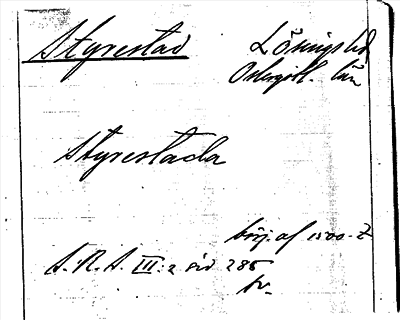 Styrestad Lösings hd
Östergötl. län
Styrestada
börj. af 1500-t.
S.R.A. III:2 sid 285
hr.